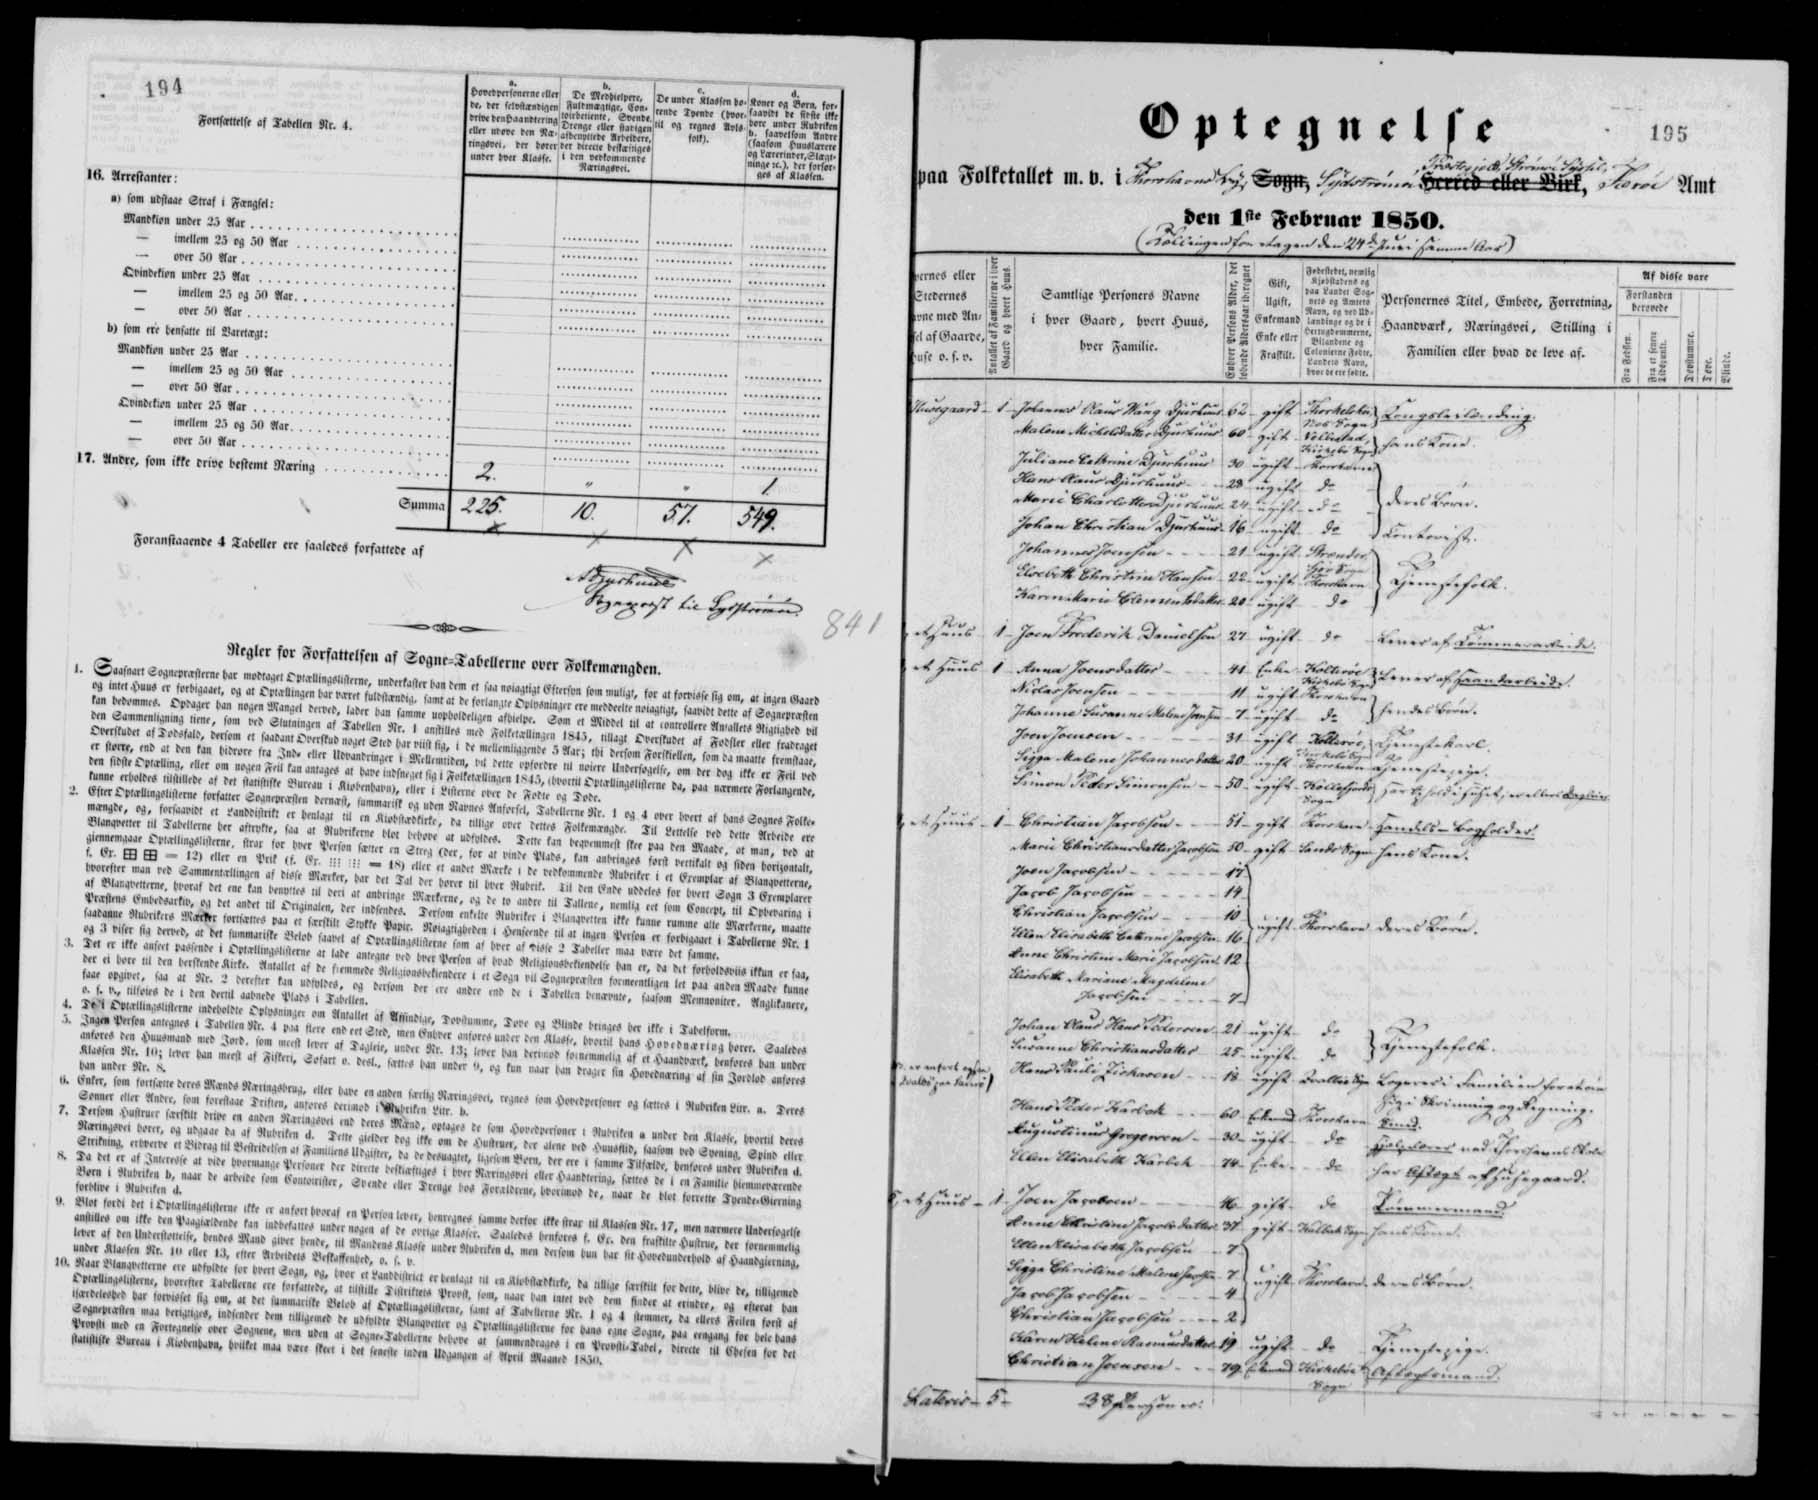 194
Fortsættelse af Tabellen Nr. 4.
a.
Hovedpersonerne eller
de, der selvstændigen
drive den Haandtering
eller udøve den Næ-
ringsvei, der hører
under hver Klasse.
b.
De Medhjelpere,
Fuldmægtige, Con-
toirbetiente, Svende,
Drenge eller stadigen
afbenyttede Arbeidere,
der directe beskæftiges
i den vedkommende
Næringsvei.
c.
De under Klassen hø-
rende Tyende (hvor-
til og regnes Avls-
folk).
d.
Koner og Børn, for-
saavidt de sidste ikke
høre under Rubriken
b. saavelsom Andre
(saasom Huuslærere
og Lærerinder, Slægt-
ninge ꝛc.), der forsør-
ges af Klassen.
16. Arrestanter:
a) som udstaae Straf i Fængsel:
Mandkiøn under 25 Aar
— imellem 25 og 50 Aar
— over 50 Aar
Qvindekiøn under 25 Aar
— imellem 25 og 50 Aar
— over 50 Aar
b) som ere hensatte til Varetægt:
Mandkiøn under 25 Aar
— imellem 25 og 50 Aar
— over 50 Aar
Qvindekiøn under 25 Aar
— imellem 25 og 50 Aar
— over 50 Aar
17. Andre, som ikke drive bestemt Næring 2. " " 1.
Summa 225. 10. 57. 549.
Foranstaaende 4 Tabeller ere saaledes forfattede af
Djurhuus
Sognepræst til Sydstrømøe
841
Regler for Forfattelsen af Sogne-Tabellerne over Folkemængden.
1. Saasnart Sognepræsterne har modtaget Optællingslisterne, underkaster han dem et saa nøiagtigt Eftersyn som muligt, for at forvisse sig om, at ingen Gaard
og intet Huus er forbigaaet, og at Optællingen har været fuldstændig, samt at de forlangte Oplysninger ere meddeelte nøiagtigt, saavidt dette af Sognepræsten
kan bedømmes. Opdager han nogen Mangel derved, lader han samme uopholdeligen afhielpe. Som et Middel til at controllere Antallets Rigtighed vil
den Sammenligning tiene, som ved Slutningen af Tabellen Nr. 1 anstilles med Folketællingen 1845, tillagt Overskudet af Fødsler eller fradraget
Overskudet af Dødsfald, dersom et saadant Overskud noget Sted har viist sig, i de mellemliggende 5 Aar; thi dersom Forskiellen, som da maatte fremstaae,
er større, end at den kan hidrøre fra Ind- eller Udvandringer i Mellemtiden, vil dette opfordre til nøiere Undersøgelse, om der dog ikke er Feil ved
den sidste Optælling, eller om nogen Feil kan antages at have indsneget sig i Folketællingen 1845, (hvortil Optællingslisterne da, paa nærmere Forlangende,
kunne erholdes tilstillede af det statistiske Bureau i Kiøbenhavn), eller i Listerne over de Fødte og Døde.
2. Efter Optællingslisterne forfatter Sognepræsten dernæst, summarisk og uden Navnes Anførsel, Tabellerne Nr. 1 og 4 over hvert af hans Sognes Folke-
mængde, og, forsaavidt et Landdistrikt er henlagt til en Kiøbstedkirke, da tillige over dettes Folkemængde. Til Lettelse ved dette Arbeide ere
Blanqvetter til Tabellerne her aftrykte, saa at Rubrikerne blot behøve at udfyldes. Dette kan beqvemmest skee paa den Maade, at man, ved at
giennemgaae Optællingslisterne, strax for hver Person sætter en Streg (der, for at vinde Plads, kan anbringes først vertikalt og siden horizontalt,
f. Ex. ⊞ ⊞ = 12) eller en Prik (f. Ex. ⁝⁝⁝ ⁝⁝⁝ = 18) eller et andet Mærke i de vedkommende Rubriker i et Exemplar af Blanqvetterne,
hvorefter man ved Sammentællingen af disse Mærker, har det Tal der hører til hver Rubrik. Til den Ende uddeles for hvert Sogn 3 Exemplarer
af Blanqvetterne, hvoraf det ene kan benyttes til deri at anbringe Mærkerne, og de to andre til Tallene, nemlig eet som Concept, til Opbevaring i
Præstens Embedsarkiv, og det andet til Originalen, der indsendes. Dersom enkelte Rubriker i Blanqvetten ikke kunne rumme alle Mærkerne, maatte
saadanne Rubrikers Mærker fortsættes paa et særskilt Stykke Papir. Nøiagtigheden i Henseende til at ingen Person er forbigaaet i Tabellerne Nr. 1
og 3 viser sig derved, at det summariske Beløb saavel af Optællingslisterne som af hver af disse 2 Tabeller maa være det samme.
3. Det er ikke anseet passende i Optællingslisterne at lade antegne ved hver Person af hvad Religionsbekiendelse han er, da det forholdsviis ikkun er faa,
der ei høre til den herskende Kirke. Antallet af de fremmede Religionsbekiendere i et Sogn vil Sognepræsten formeentligen let paa anden Maade kunne
faae opgivet, saa at Nr. 2 derefter kan udfyldes, og dersom der ere andre end de i Tabellen benævnte, saasom Memnoniter, Anglikanere,
o. s. v., tilføies de i den dertil aabnede Plads i Tabellen.
4. De i Optællingslisterne indeholdte Oplysninger om Antallet af Afsindige, Døvstumme, Døve og Blinde bringes her ikke i Tabelform.
5. Ingen Person antegnes i Tabellen Nr. 4 paa flere end eet Sted, men Enhver anføres under den Klasse, hvortil hans Hovednæring hører. Saaledes
anføres den Huusmand med Jord, som meest lever af Dagleie, under Nr. 13; lever han derimod fornemmelig af et Haandværk, henføres han under
Klassen Nr. 10; lever han meest af Fiskeri, Søfart o. desl., sættes han under 9, og kun naar han drager sin Hovednæring af sin Jordlod anføres
han under Nr. 8.
6. Enker, som fortsætte deres Mænds Næringsbrug, eller have en anden særlig Næringsvei, regnes som Hovedpersoner og sættes i Rubriken Litr. a. Deres
Sønner eller Andre, som forestaae Driften, anføres derimod i Rubriken Litr. b.
7. Dersom Hustruer særskilt drive en anden Næringsvei end deres Mænd, optages de som Hovedpersoner i Rubriken a under den Klasse, hvortil deres
Næringsvei hører, og udgaae da af Rubriken d. Dette gielder dog ikke om de Hustruer, der alene ved Huusflid, saasom ved Syening, Spind eller
Strikning, erhverve et Bidrag til Bestridelsen af Familiens Udgifter, da de desuagtet, ligesom Børn, der ere i samme Tilfælde, henføres under Rubriken d.
8. Da det er af Interesse at vide hvormange Personer der directe beskiæftiges i hver Næringsvei eller Haandtering, sættes de i en Familie hiemmeværende
Børn i Rubriken b, naar de arbeide som Contoirister, Svende eller Drenge hos Forældrene, hvorimod de, naar de blot forrette Tyende-Gierning
forblive i Rubriken d.
9. Blot fordi det i Optællingslisterne ikke er anført hvoraf en Person lever, henregnes samme derfor ikke strax til Klassen Nr. 17, men nærmere Undersøgelse
anstilles om ikke den Paagiældende kan indbefattes under nogen af de øvrige Klasser. Saaledes henføres f. Ex. den fraskilte Hustrue, der fornemmelig
lever af den Understøttelse, hendes Mand giver hende, til Mandens Klasse under Rubriken d, men dersom hun har sit Hovedunderhold af Haandgierning,
under Klassen Nr. 10 eller 13, efter Arbeidets Beskaffenhed, o. s. v.
10. Naar Blanqvetterne ere udfyldte for hvert Sogn, og, hvor et Landdistrict er henlagt til en Kiøbstedkirke, da tillige særskilt for dette, blive de, tilligemed
Optællingslisterne, hvorefter Tabellerne ere forfattede, at tilstille Districtets Provst, som, naar han intet ved dem finder at erindre, og efterat han
isærdeleshed har forvisset sig om, at det summariske Beløb af Optællingslisterne, samt af Tabellerne Nr. 1 og 4 stemmer, da ellers Feilen først af
Sognepræsten maa berigtiges, indsender dem tilligemed de udfyldte Blanqvetter og Optællingslisterne for hans egne Sogne, paa eengang for hele hans
Provsti med en Fortegnelse over Sognene, men uden at Sogne-Tabellerne behøve at sammendrages i en Provsti-Tabel, directe til Chefen for det
statistiske Bureau i Kiøbenhavn, hvilket maa være skeet i det seneste inden Udgangen af April Maaned 1850.
195
Optegnelse
paa Folketallet m. v. i Thorshavns By, Sogn, Sydstrømøe Præstegjeld, Strømøe Syssel, Herred eller Birk, Færøe Amt
den 1ste Februar 1850.
(Tællingen foretagen den 24de Juni samme Aar)
vernes eller
Stedernes
avne med An-
sel af Gaarde,
use o. s. v.
Antallet af Familierne i hver
Gaard og hvert Huus.
Samtlige Personers Navne
i hver Gaard, hvert Huus,
hver Familie.
Enhver Persons Alder, det
løbende Aldersaar iberegnet
Gift,
Ugift,
Enkemand
Enke eller
Fraskilt.
Fødestedet, nemlig
Kjøbstadens og
paa Landet Sog-
nets og Amtets
Navn, og ved Ud-
lændinge og de i
Hertugdømmerne,
Bilandene og
Colonierne Fødte,
Landets Navn,
hvor de ere fødte.
Personernes Titel, Embede, Forretning,
Haandværk, Næringsvei, Stilling i
Familien eller hvad de leve af.
Af disse vare
Forstanden
berøvede
Fra Fødslen.
Fra et senere
Tidspunkt.
Døvstumme.
Døve.
Blinde.
Husegaard 1 Johannes Claus Wang Djurhuus 62 gift Nes Sogn
Malene Michelsdatter Djurhuus 60 gift Velbestad, Kirkebø Sogn hans Kone.
Juliane Cathrine Djurhuus 30 ugift Thorshavn
Hans Claus Djurhuus 28 ugift do
Marie Charlotte Djurhuus 24 ugift do deres Børn.
Johan Christian Djurhuus 16 ugift do Kontorist.
Johannes Joensen 21 ugift Strænder, Sogn
Elsebeth Christine Hansen 22 ugift Thorshavn Tjenestefolk.
Karen Marie Clementsdatter 20 ugift do
et Huus 1 Joen Frederik Danielsen 27 ugift do Lever af Tømmerarbeide.
et Huus 1 Anna Joensdatter 41 Enke Kolterøe Kirkebø Sogn Lever af Haandarbeide.
Niclas Joensen 11 ugift Thorshavn
Johanne Susanne Malene Joensen 7 ugift do hendes Børn.
Joen Joensen 31 ugift Kolterøe, Kirkebø Sogn Tjenestekarl.
Sigga Malene Johannesdatter 20 ugift Thorshavn Tjenestepige.
Simon Peder Simonsen 50 ugift Kollefjords Sogn
et Huus 1 Christian Jacobsen 51 gift Thorshavn Handels-Bogholder.
Marie Christiansdatter Jacobsen 50 gift Sands Sogn hans Kone.
Joen Jacobsen 17
Jacob Jacobsen 14
Christian Jacobsen 10
Ellen Elisabeth Cathrine Jacobsen 16 ugift Thorshavn deres Børn.
Anne Christine Marie Jacobsen 12
Elisabeth Mariane Magdalene
Jacobsen 7
Johan Claus Hans Pedersen 21 ugift do
Susanne Christiansdatter 25 ugift do Tjenestefolk.
Hans Pauli 18 ugift Qvalbøe Sogn Logerer i Familien
i Skrivning og Regning.
Hans Peder Karbek 60 Enkemand Thorshavn
Augustinus Gregersen 30 ugift do Hjelpelærer ved Thorshavns Skole
Ellen Elisabeth Karbek 74 Enke do har Aftægt af Husegaard.
5, et Huus 1 Joen Jacobsen 46 gift do Tømmermand
Anne Christine Jacobsdatter 37 gift Kalbak Sogn hans Kone.
Ellen Elisabeth Jacobsen 7
Sigga Christine Malene Jacobsen 7 ugift Thorshavn deres Børn.
Jacob Jacobsen 4
Christian Jacobsen 2
Karen Helene Rasmusdatter 19 ugift do Tjenestepige.
Christian Joensen 79 Enkemand Kirkebøe Sogn Aftægtsmand.
Lateris 5 38 Personer.